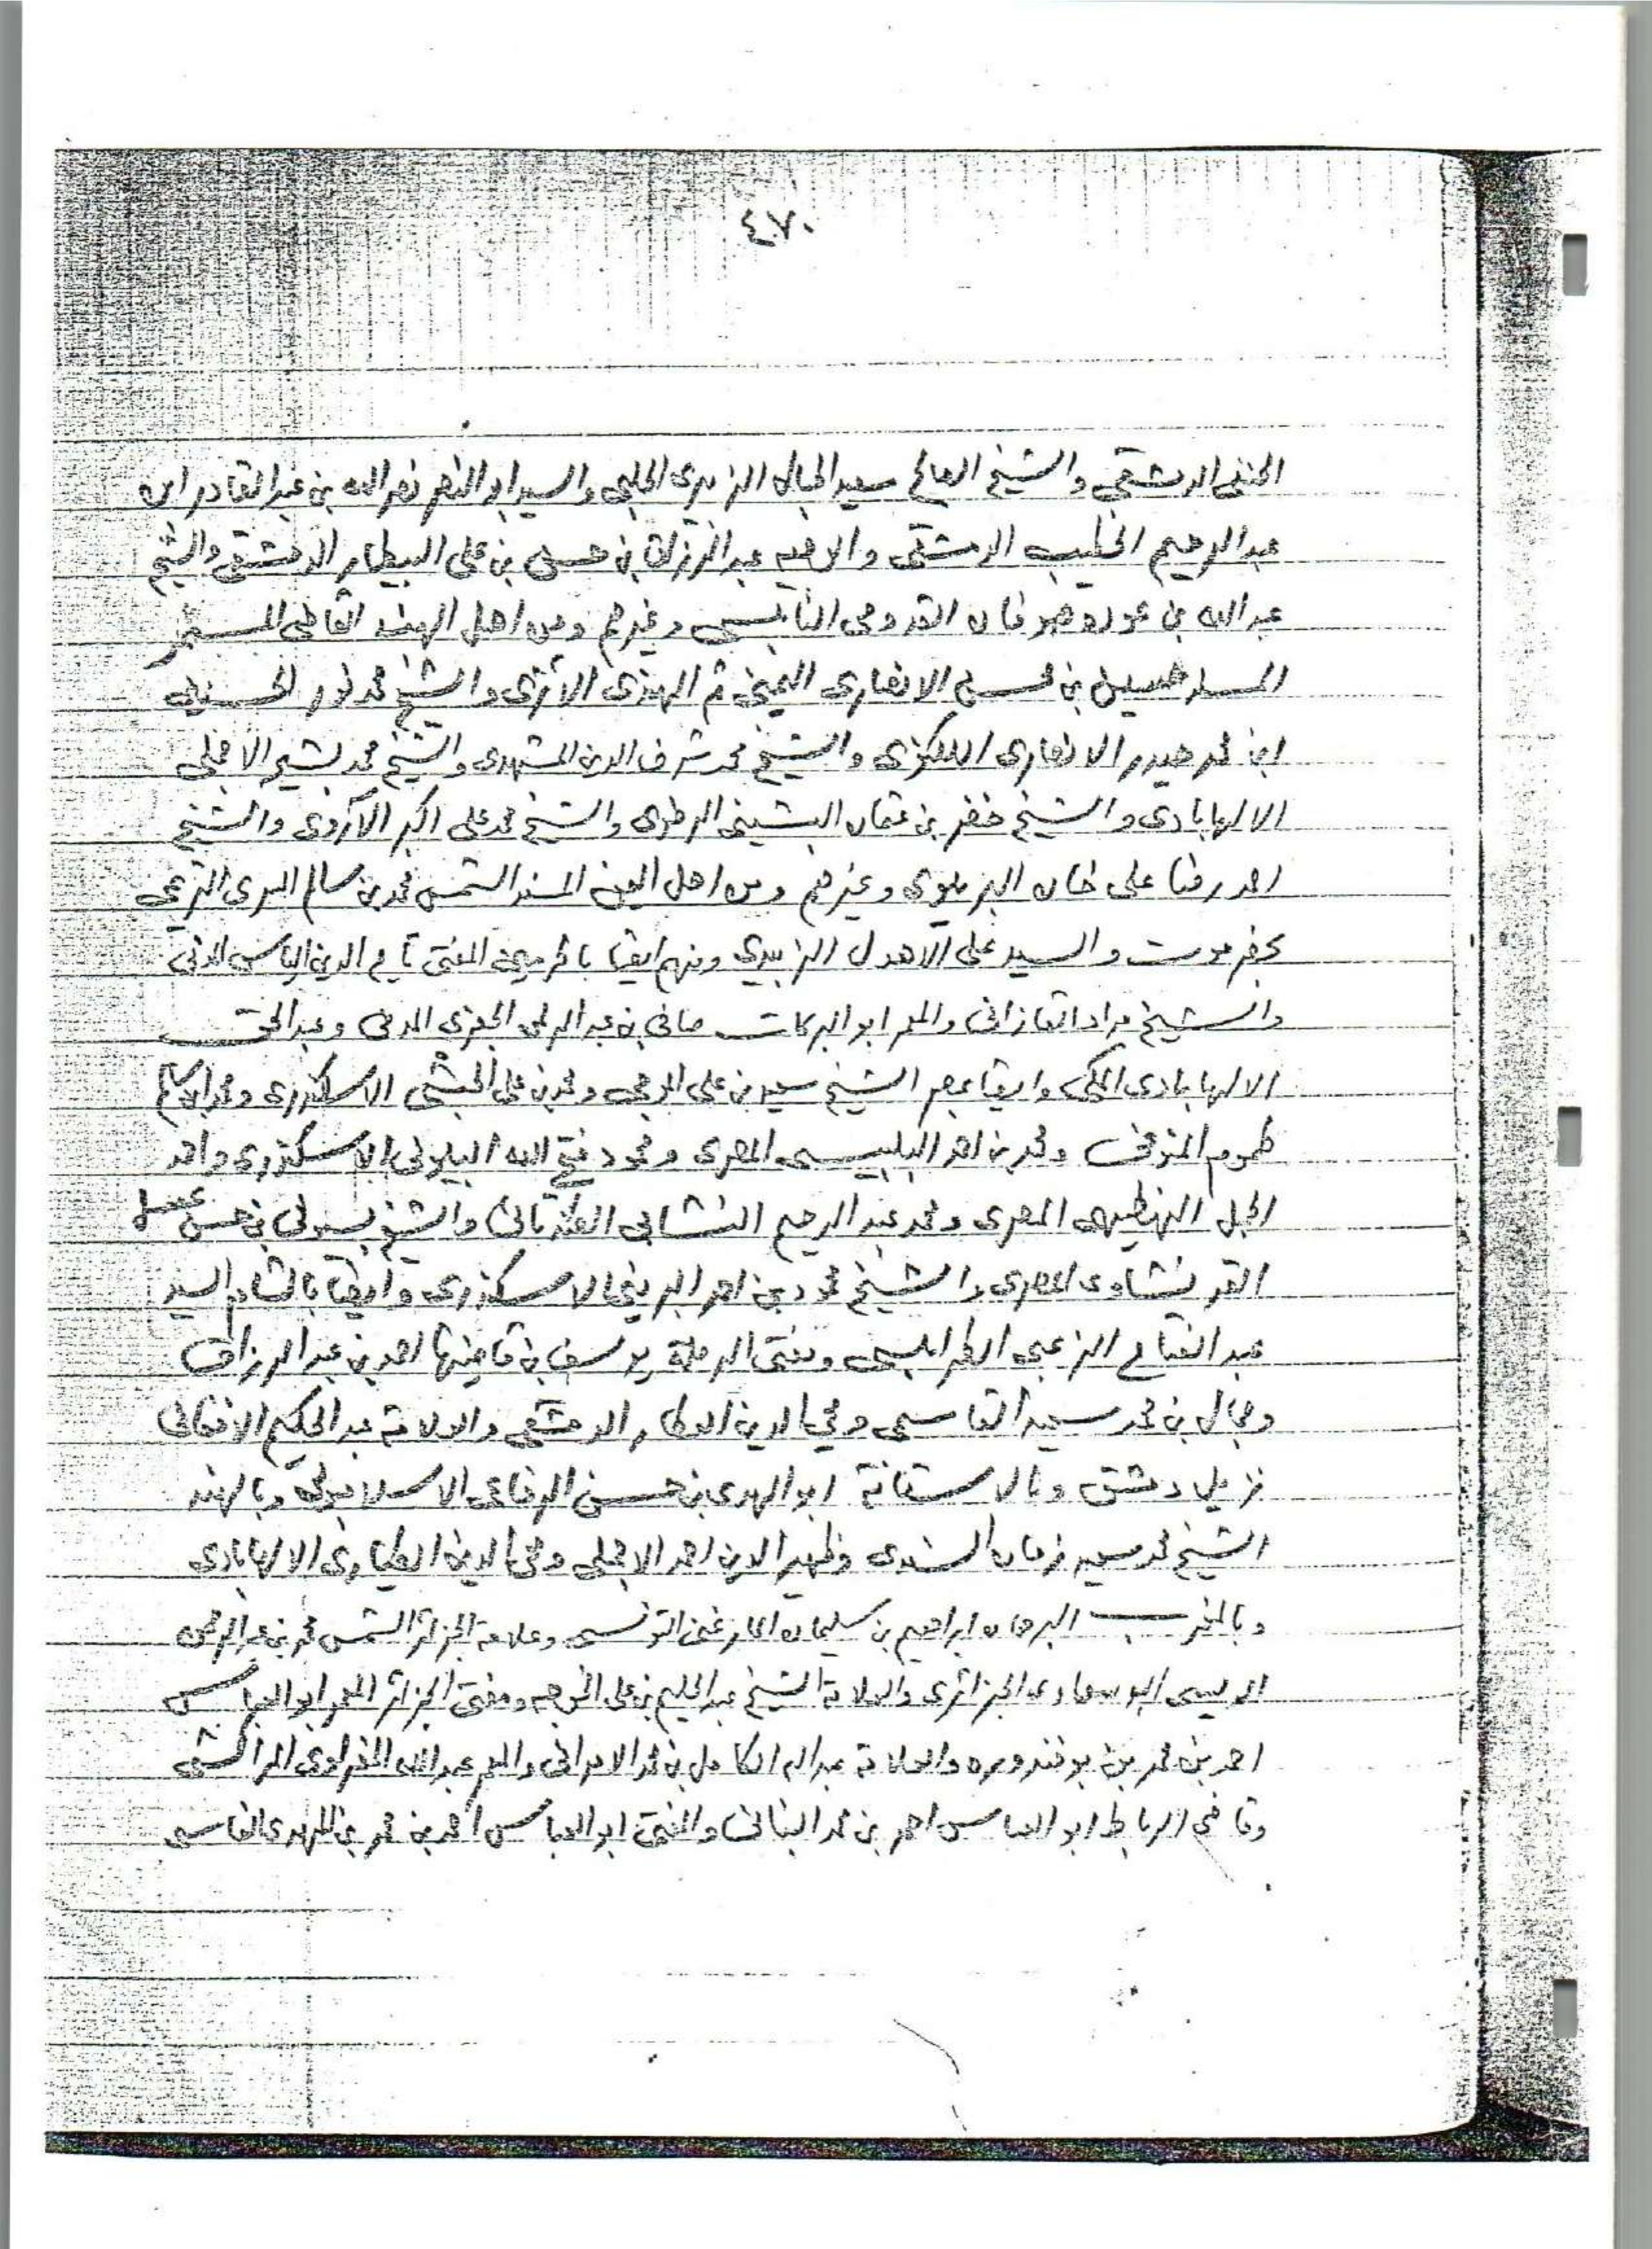 ٤٧٠
الحنفى الدمشقى والشيخ الصالح سعيد الحبال الزبيرى الحلبى والسيد ابو النصر نصر الله بن عبد القادر ابن
عبد الرحيم الخطيب الدمشقى والاديب عبد الرزاق بن حسن بن على البيطار الدمشقى والشيخ
عبد الله بن عودة صوفان القدومى النابلسى وغيرهم ومن اهل الهند القاضى المعمر
المسند حسين بن محسن الانصارى اليمنى ثم الهندى الاثرى والشيخ محمد نور الحسنين
ابن محمد حيدر الانصارى اللكنوى والشيخ محمد شرف الدين المشهدى والشيخ محمد بشير الاجملى
الالهابادى والشيخ خضر بن عثمان والشيخ محمد على اكبر الآروى والشيخ
احمد رضا على خان البريلوى وغيرهم ومن اهل اليمن المسند الشمس محمد بن سالم السرى التريمى
بحضرموت والسيد على الاهدل الزبيدى ومنهم ايضا بالحرمين المفتى تاج الدين الياس المدنى
والشيخ مراد القازانى والمعمر ابو البركات صافى بن عبد الرحمن الجفرى المدنى وعبد الحق
الالهابادى المكى وايضا بمصر الشيخ سعيد بن على الموجى ومحمد بن على الحبشى الاسكندرى ومحمد الامام
طموم المنوفى ومحمد بن احمد البلبيسى المصرى ومحمود فتح الله البيلونى الاسكندرى واحمد
الجمل النهطيهى المصرى ومحمد عبد الرحيم النشابى الطندتائى والشيخ بسيونى بن حسن عسل
القرنشاوى المصرى والشيخ محمود بن احمد الاسكندرى وايضا بالشام السيد
عبد الفتاح الزعبى الطرابلسى ومفتى الرملة يوسف بن قاضيها احمد بن عبد الرزاق
وجمال بن محمد سعيد القاسمى ومحيى الدين العطار الدمشقى والعلامة عبد الحكيم الافغانى
نزيل دمشق وبالاستانة ابو الهدى بن حسن الرفاعى الاسلامبولى وبالهند
الشيخ محمد سعيد زمان السندى وظهير الدين احمد الاجملى ومحيى الدين الالهابادى
وبالمغرب البرهان ابراهيم بن سليمان المارغنى التونسى وعلامة الجزائر الشمس محمد بن عبد الرحمن
الديسى البوسعادى الجزائرى والعلامة الشيخ عبد الحليم بن على ومفتى الجزائر المعمر ابو العباس
احمد بن محمد بن بوقندوره والعلامة عبد الله الكامل بن محمد الامرانى والمعمر عبد الله المراكشى
وقاضى الرباط ابو العباس احمد بن محمد البنانى والمفتى ابو العباس احمد بن محمد بن المهدى الفاسى